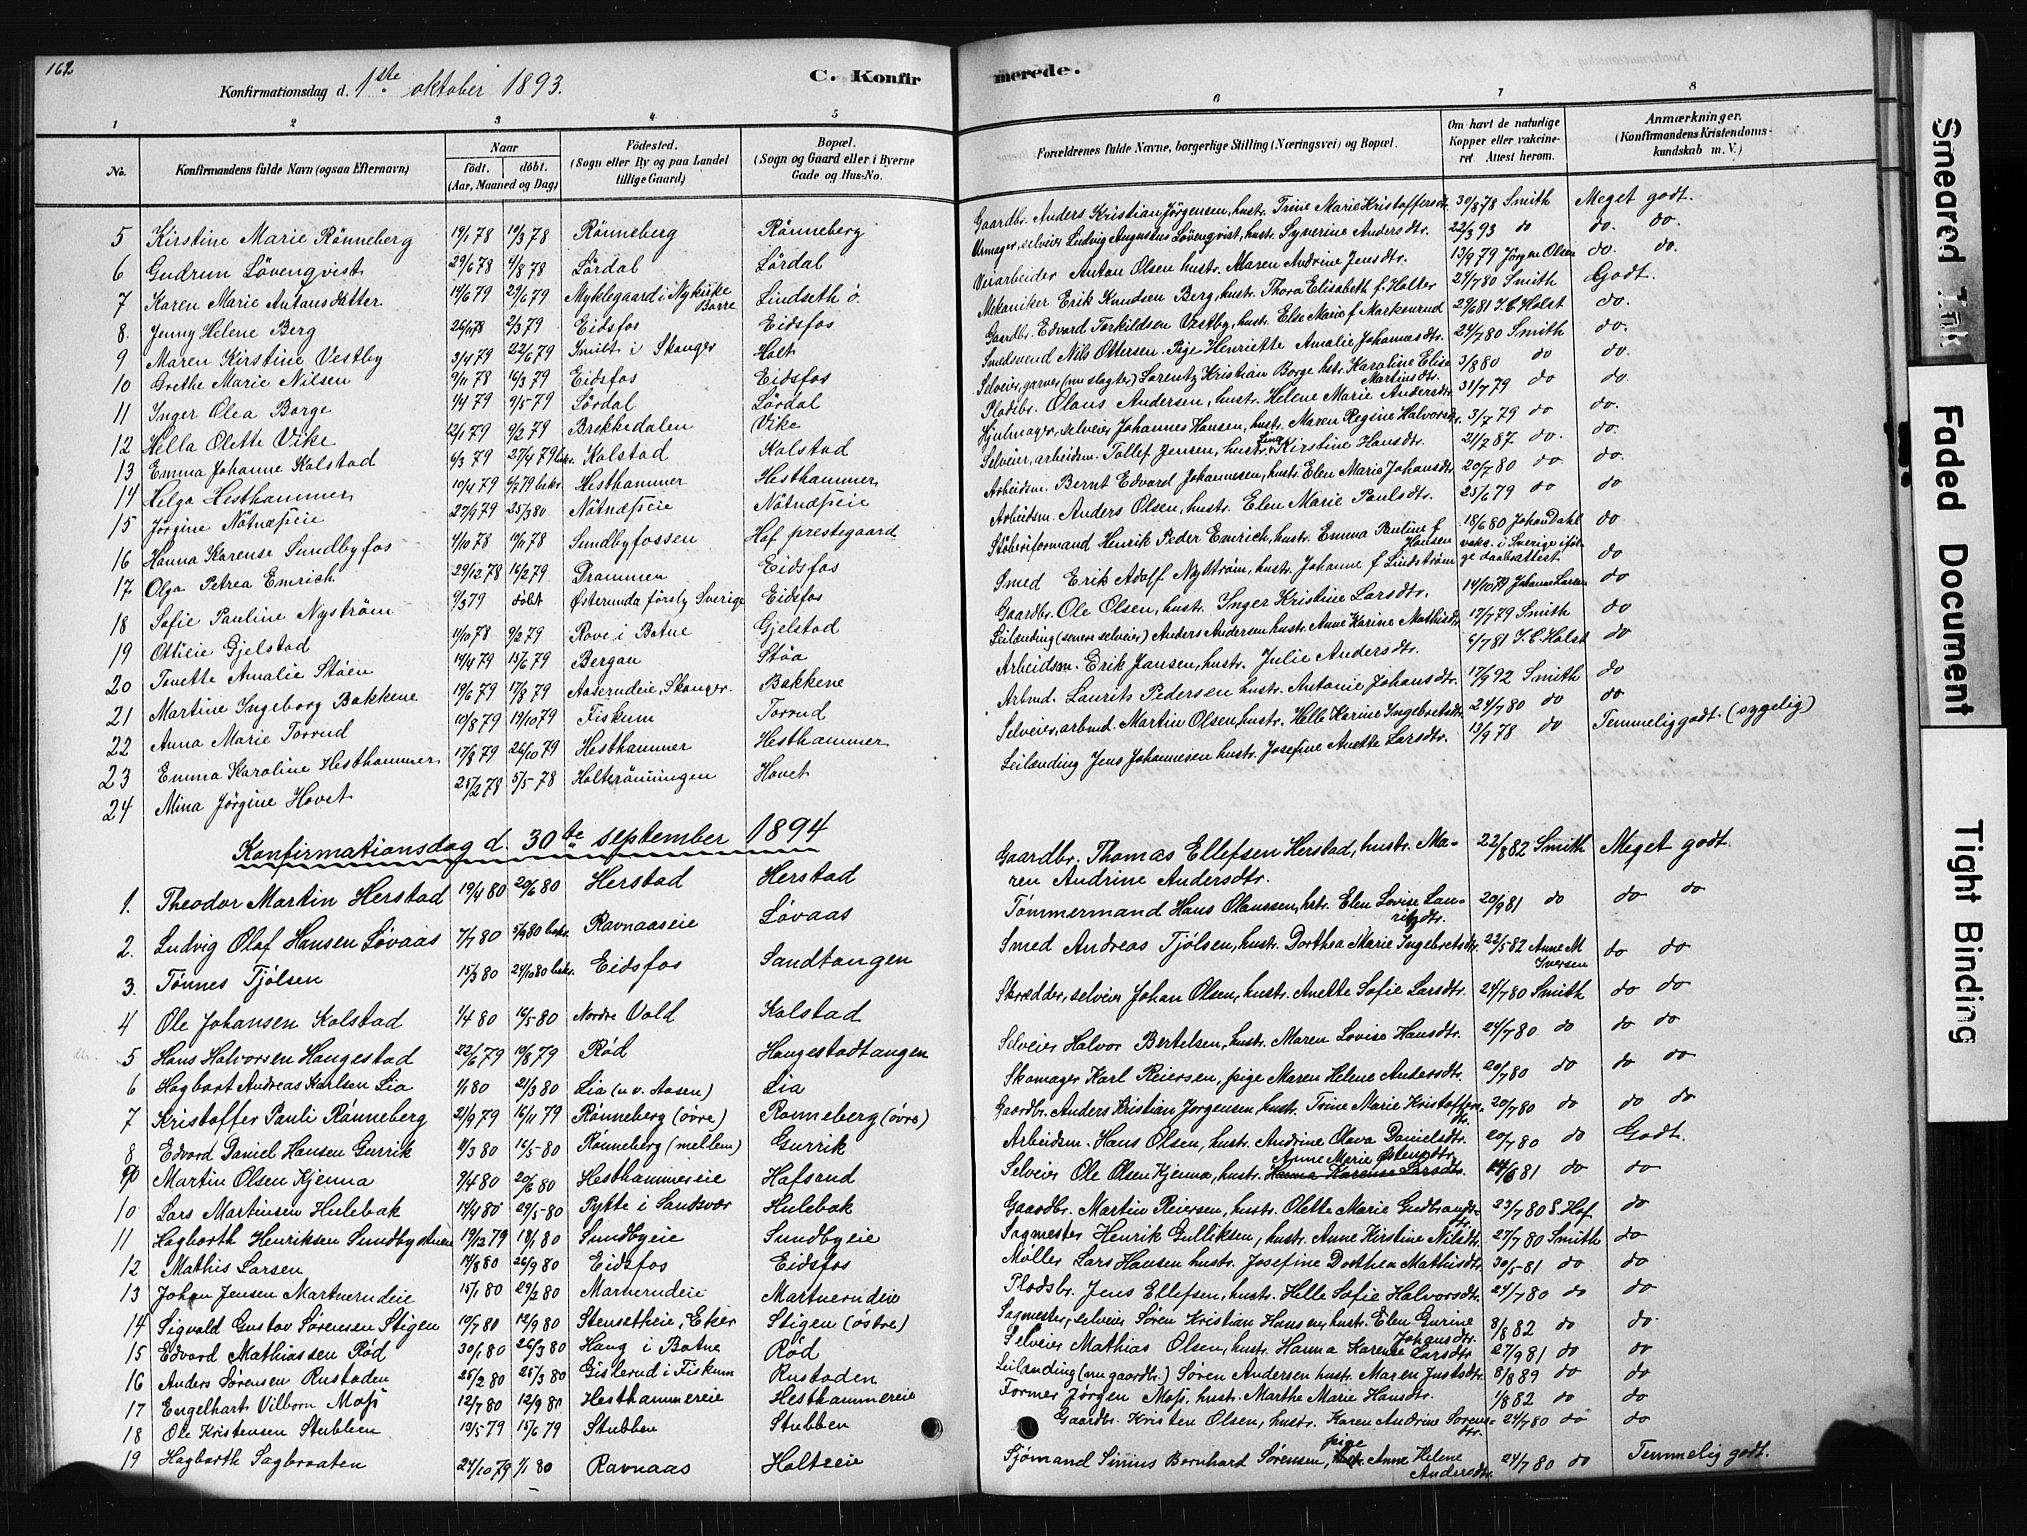 162
Konfirmationsdag d. 1ste oktober 1893.
C. Konfir
merede.
1 2 3 4 5 6 7 8
No.
Konfirmandens fulde Navn (ogsaa Efternavn)
Naar
födt. döbt.
(Aar, Maaned og Dag)
Födested.
(Sogn eller By og paa Landet
tillige Gaard)
Bopæl.
(Sogn og Gaard eller i Byerne
Gade og Hus-No.
Forældrenes fulde Navne, borgerlige Stilling (Næringsvei) og Bopæl.
Om havt de naturlige
Kopper eller vakcine-
ret Attest herom.
Anmærkninger.
(Konfirmandens Kristendoms-
kundskab m. V.)
5 Kirstine Marie Rönneberg 19/1 78 10/3 78 Rönneberg Rönneberg Gaardbr. Anders Kristian Jörgensen, hustr. Trine Marie Kristoffersdt. 30/8 78 Smith Meget godt.
6 Gudrun Lövenqvist 29/6 78 4/8 78 Lördal Lördal Urmager, selveier Ludvig Augustus Lövenqvist, hustr. Syverine Andersdtr. 22/3 93 do do. do.
7 Karen Marie Antonsdatter 14/6 79 29/6 79 Myklegaard i Nykirke Borre Lindseth ö. Veiarbeider Anton Olsen hustr. Maren Andrine Jensdtr. 13/9 79 Jörgen Olsen do. do.
8. Jenny Helene Berg 26/11 78 2/3 79 Eidsfos Eidsfos Mekaniker Erik Knudsen Berg, hustr. Thora Elisabeth f. Holter 24/7 80 Smith Godt.
9 Maren Kirstine Vestby 3/4 79 22/6 79 Smilt i Skauger Holt Gaardbr. Edvard Torkildsen Vestby, hustr. Else Marie f Markenrud 29/6 81 I. C. Holst do.
10 Grethe Marie Nilsen 9/11 78 16/3 79 Eidsfos Eidsfos Smedsvend Nils Ottersen. Pige Henriette Amalie Johannesdtr. 24/7 80 Smith do.
11 Inger Olea Borge 1/4 79 9/5 79 Lördal Lördal Selveier, garver (nu slagter) Lorentz Kristian Borge hstr. Karoline Elise Martinsdtr. 3/8 80 do do.
12 Hella Olette Vike 12/1 79 9/2 79 Brekkedalen Vike Pladsbr. Olaus Andersen, hustr. Helene Marie Andersdtr. 31/7 79 do do.
13 Emma Johanne Kolstad 6/3 79 27/4 79 bekr. Kolstad Kolstad Hjulmager, selveier Johannes Hansen, hustr. Maren Regine Halvorsdtr. 3/7 79 do do.
14 Helga Hesthammer 10/4 79 6/7 79 bekr. Hesthammer Hesthammer Selveier, arbeidsm. Tollef Jensen, hustr. Lina Kirstine Hansdtr. 21/7 87 do. do.
15 Jörgine Nötnæseie 27/9 79 25/3 80 Nötnæseie Nötnæseie Arbeidsm. Bernt Edvard Johannesen, hustr. Elen Marie Johansdtr. 20/7 80 do do.
16 Hanna Karense Sundbyfos 4/10 78 10/11 78 Sundbyfossen Hof prestegaard Arbeidsm. Anders Olsen, hustr. Elen Marie Paulsdtr. 25/6 79 do do
17 Olga Petrea Emrich 29/12 78 16/2 79 Drammen Eidsfos Stöberiformand Henrik Peder Emrich, hustr. Emma Pauline f Hansen 18/6 80 Johan Dahl do
18 Sofie Pauline Nyström 9/3 79 döbt Österunda försly Sverige Eidsfos Smed Erik Adolf Nyström, hustr. Johanne f Lindström vakc. i Sverige iföl- ge daabsattest do
19 Ottilie Gjelstad 11/10 78 9/2 79 Rove i Botne Gjelstad Gaardbr. Ole Olsen, hustr. Inger Kristine Larsdtr. 14/10 79 Johannes Larsen do
20 Tonette Amalie Stöen 14/4 79 15/6 79 Bergan Stöa Leilænding (senere selveier) Anders Andersen hustr. Anne Karine Mathisdtr. 17/7 79 Smith do
21 Martine Ingeborg Bakkene 19/6 79 17/8 79 Aaserudeie, Skauger. Bakkene Arbeidsm. Erik Jansen, hustr. Julie Andersdtr. 6/7 81 I. C. Holst do
22 Anna Marie Torrud 10/8 79 19/10 79 Fiskum Torrud Arbmd. Laurits Pedersen hustr. Antonie Johansdtr. 17/9 92 Smith do
23 Emma Karoline Hesthammer 17/8 79 26/10 79 Hesthammer Hesthammer Selveier, arbmd. Martin Olsen, hustr. Helle Karine Ingebretsdtr. 24/7 80 do do
24 Mina Jörgine Hovet 25/2 78 5/5-78 Holterönningen Hovet Leilænding Jens Johannesen hustr. Josefine Anette Larsdtr. 13/9 78 do Temmelig godt. (sygelig)
Konfirmationsdag d. 30te september 1894
1. Theodor Martin Herstad 19/4 80 20/6 80 Herstad Herstad Gaardbr. Thomas Ellefsen Herstad, hustr. Ma-ren Andrine Andersdtr. 22/8 82 Smith Meget godt.
2. Ludvig Olaf Hansen Lövaas 7/7 80 5/9 80 bekr. Ravnaaseie Lövaas Tömmermand Hans Olaussen, hstr. Elen Lovise Lau-ritzdtr. 20/9 81 do do do
3. Tönnes Tjölsen 15/3 80 24/10 80 bekr. Eidsfos Sandtangen Smed Andreas Tjölsen, hustr. Dorthea Marie Ingebretsdtr. 22/5-82 Anne M Iversen do do
4 Ole Johansen Kolstad 1/4 80 16/5-80 Nordre Vold Kolstad Skrædder, selveier Johan Olsen, hustr. Anette Sofie Larsdtr. 24/7 80 Smith do do
5 Hans Halvorsen Haugestad 22/6 79 10/8 79 Röd Haugestadtangen Selveier Halvor Bertelsen, hustr. Maren Lovise Hansdtr. 24/7 80 do do do
6 Hagbart Andreas Karlsen Lia 1/1 80 21/3 80 Lia (u. v. Aasen) Lia Skomager Karl Reiersen, pige Maren Helene Andersdtr. 20/7 80 do do do
7 Kristoffer Pauli Rönneberg 21/9 79 16/11 79 Rönneberg (övre) Rönneberg (övre) Gaardbr. Anders Kristian Jörgensen, hustr. Trine Marie Kristoffers-dtr. 20/7 80 do do do
8 Edvard Daniel Hansen Gurrik 11/3 80 16/5-80 Rönneberg (mellem) Gurrik Arbeidsm. Hans Olsen, hustr. Andrine Olava Danielsdtr. 20/7 80 do Godt.
9 Martin Olsen Kjenna 7/4 80 20/6 80 Hesthammereie Hafsrud Selveier Ole Olsen Kjenna, hustr. Hanna Karense Larsdtr. Anne Marie Östensdtr. 14/6 81 do do
10 Lars Martinsen Hulebak 14/4 80 29/5-80 Pytte i Sandsvær Hulebak Gaardbr. Martin Reiersen, hustr. Olette Marie Gudbrands-dtr. 23/7 80 S. Hof do
11 Hagbarth Henriksen Sundbyskueie 19/12 79 18/1 80 Sundbyeie Sundbyeie Sagmester Henrik Gulliksen, hustr. Anne Kirstine Nilsdtr. 27/7 80 Smith do
12 Mathis Larsen 14/8 80 26/9 80 Eidsfos Eidsfos Møller Lars Hansen hustr. Josefine Dorthea Mathisdtr. 30/5-81 do do
13 Johan Jensen Martnerudeie 15/1 80 29/2 80 Marnerudeie Martnerudeie Pladsbr. Jens Ellefsen, hustr. Helle Sofie Halvorsdtr. 24/7 80 do do
14 Sigvald Gustav Sörensen Stigen 10/7 80 12/9 80 Stensetheie, Eker Stigen (östre) Sagmester, selveier Sören Kristian Hansen, hustr. Elen Gurine Johansdtr. 8/8 82 do do.
15 Edvard Mathiassen Röd 30/1 80 26/3 80 Haug i Botne Röd Selveier Mathias Olsen, hustr. Hanna Karense Larsdtr 27/9 81 do do
16 Anders Sörensen Rustaden 25/2 80 25/3 80 Gislerud i Fiskum Rustaden Leilænding (nu gaardbr.) Sören Andersen hustr. Maren Justsdtr. 8/8 89 do do
17 Engelhart Vilborn Moss 12/7 80 12/9 80 Hesthammereie Hesthammereie Former Jörgen Moss, hustr. Marthe Marie Hansdtr. 1/8 82 do do
18 Ole Kristensen Stubben 19/5-79 15/6 79 Stubben Stubben Gaardbr. Kristen Olsen, hustr. Karen Andrine Sörens-dtr. 24/7 80 do do
19 Hagbarth Sagbraaten 24/10 79 1/1 80 Ravnaas Holtseie Sjömand Sinius Bernhard Sörensen, pige Anne Helene Andersdtr. 24/7 80 do Temmelig godt.
Smeared Ink
Faded Document
Tight Binding